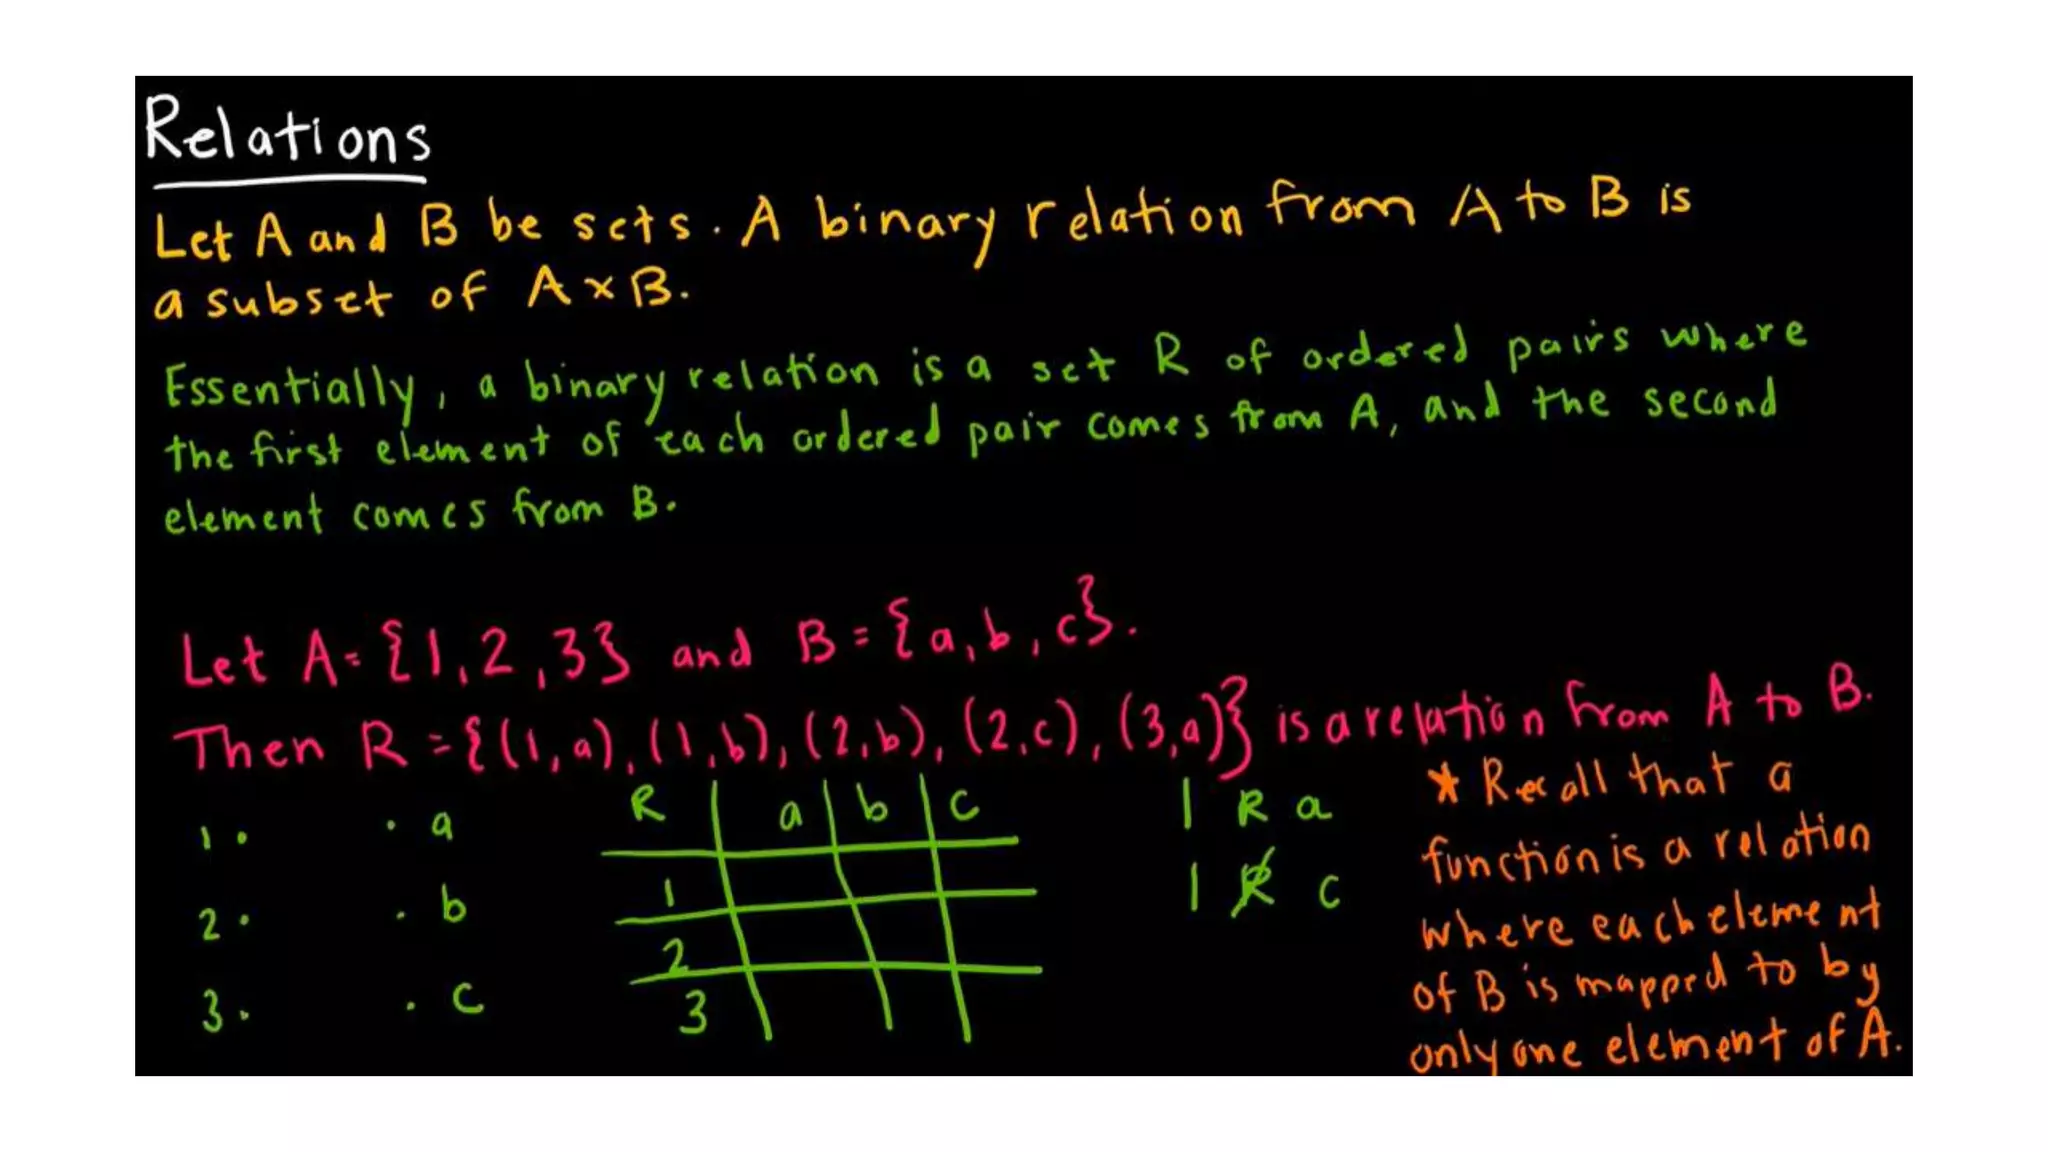 Relations
Let A and B be sets. A binary relation from A to B is
a subset of A × B.
Essentially, a binary relation is a set R of ordered pairs where
the first element of each ordered pair comes from A, and the second
element comes from B.
Let A = {1, 2, 3} and B = {a, b, c}.
Then R = {(1, a), (1, b), (2, b), (2, c), (3, a)} is a relation from A to B.
1 · · a
2 · · b
3 · · c
R a b c
1
2
3
1 R a
1 R̸ c
* Recall that a
function is a relation
where each element
of B is mapped to by
only one element of A.